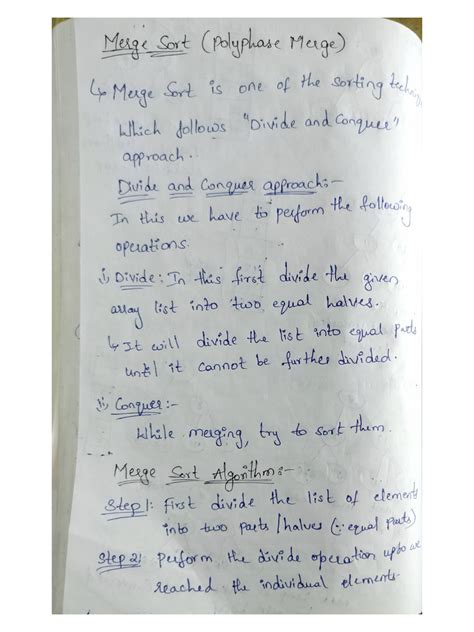 Merge Sort (Polyphase Merge)
↳ Merge Sort is one of the sorting
Which follows "Divide and Conquer"
approach.
Divide and Conquer approach:-
In this we have to perform the following
operations.
i) Divide: In this first divide the given
array list into two equal halves.
↳ It will divide the list into equal parts
until it cannot be further divided.
ii) Conquer:-
While merging, try to sort them.
Merge Sort Algorithm:-
Step 1: First divide the list of elements
into two parts/halves (∵ equal parts)
Step 2: perform the divide operation upto we
reached the individual elements.